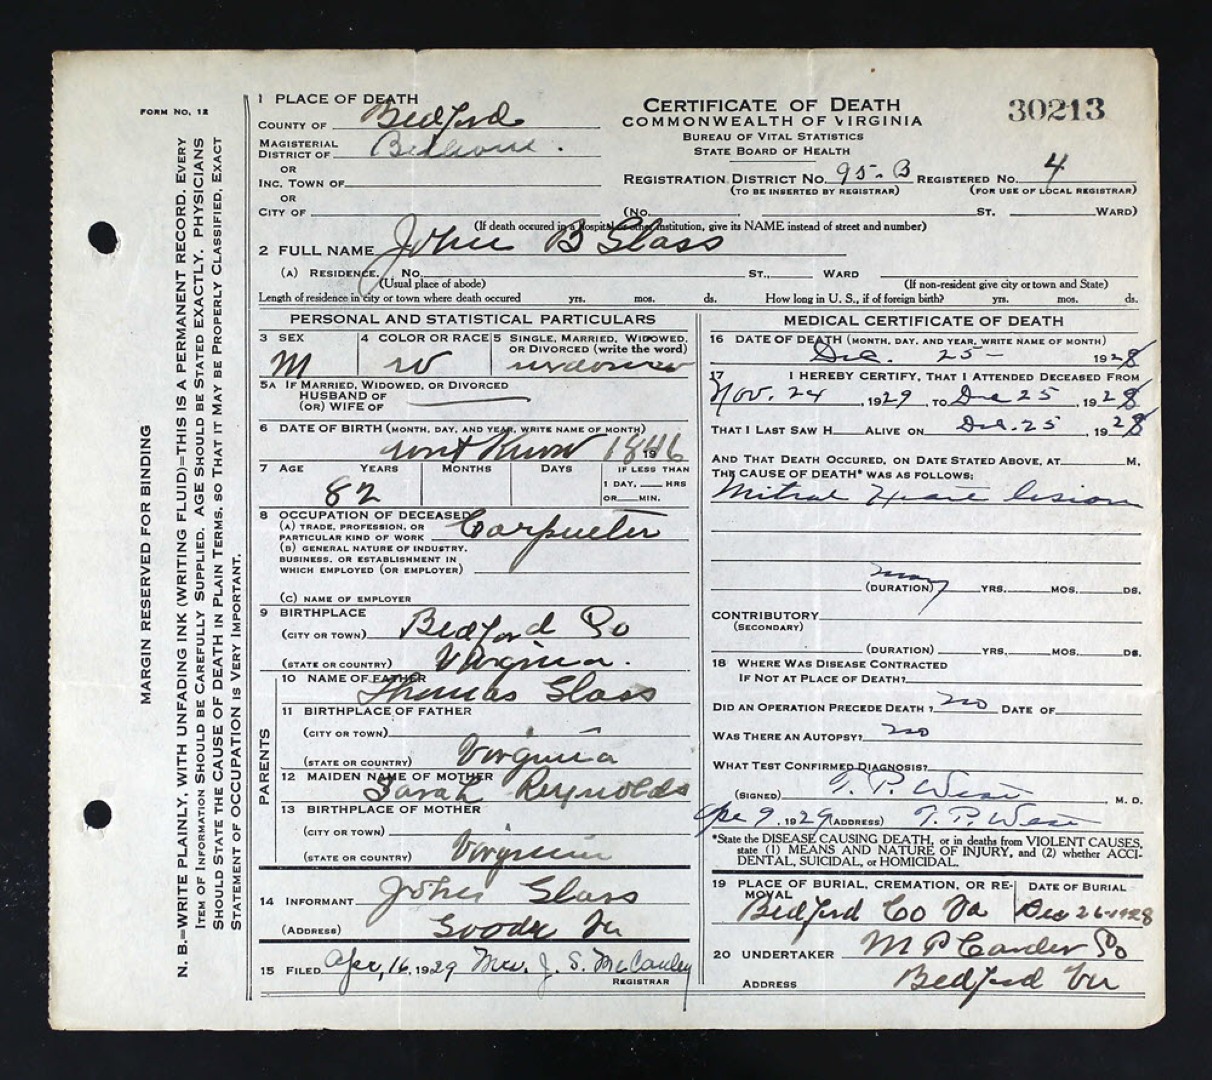 FORM No. 12
MARGIN RESERVED FOR BINDING
N. B.=WRITE PLAINLY, WITH UNFADING INK (WRITING FLUID)=THIS IS A PERMANENT RECORD. EVERY
ITEM OF INFORMATION SHOULD BE CAREFULLY SUPPLIED. AGE SHOULD BE STATED EXACTLY. PHYSICIANS
SHOULD STATE THE CAUSE OF DEATH IN PLAIN TERMS, SO THAT IT MAY BE PROPERLY CLASSIFIED. EXACT
STATEMENT OF OCCUPATION IS VERY IMPORTANT.
1 PLACE OF DEATH
COUNTY OF Bedford
MAGISTERIAL
DISTRICT OF
OR
INC. TOWN OF
OR
CITY OF
CERTIFICATE OF DEATH
COMMONWEALTH OF VIRGINIA
BUREAU OF VITAL STATISTICS
STATE BOARD OF HEALTH
30213
REGISTRATION DISTRICT NO. 95-B REGISTERED NO. 4
(TO BE INSERTED BY REGISTRAR) (FOR USE OF LOCAL REGISTRAR)
(No. ST. WARD)
(If death occured in a hospital or other institution, give its NAME instead of street and number)
2 FULL NAME John B Glass
(A) RESIDENCE. No. ST., WARD
(Usual place of abode) (If non-resident give city or town and State)
Length of residence in city or town where death occured yrs. mos. ds. How long in U. S., if of foreign birth? yrs. mos. ds.
PERSONAL AND STATISTICAL PARTICULARS
3 SEX 4 COLOR OR RACE 5 SINGLE, MARRIED, WIDOWED,
OR DIVORCED (write the word)
M W widower
5A IF MARRIED, WIDOWED, OR DIVORCED
HUSBAND OF
(OR) WIFE OF
6 DATE OF BIRTH (MONTH, DAY, AND YEAR, WRITE NAME OF MONTH)
wont Know 1846
7 AGE YEARS MONTHS DAYS IF LESS THAN
1 DAY, HRS
OR MIN.
82
8 OCCUPATION OF DECEASED
(A) TRADE, PROFESSION, OR
PARTICULAR KIND OF WORK Carpenter
(B) GENERAL NATURE OF INDUSTRY,
BUSINESS, OR ESTABLISHMENT IN
WHICH EMPLOYED (OR EMPLOYER)
(C) NAME OF EMPLOYER
9 BIRTHPLACE
(CITY OR TOWN) Bedford Co
(STATE OR COUNTRY) Virginia.
PARENTS
10 NAME OF FATHER Thomas Glass
11 BIRTHPLACE OF FATHER
(CITY OR TOWN)
(STATE OR COUNTRY) Virginia
12 MAIDEN NAME OF MOTHER
Sarah Reynolds
13 BIRTHPLACE OF MOTHER
(CITY OR TOWN)
(STATE OR COUNTRY) Virginia
14 INFORMANT John Glass
(ADDRESS) Goode Va
15 FILED Apr, 16, 1929 Mrs. J. S. McCauley
REGISTRAR
MEDICAL CERTIFICATE OF DEATH
16 DATE OF DEATH (MONTH, DAY, AND YEAR, WRITE NAME OF MONTH)
Dec. 25- 1928
17 I HEREBY CERTIFY, THAT I ATTENDED DECEASED FROM
Nov. 24, 1929, TO Dec 25, 1928
THAT I LAST SAW H ALIVE ON Dec. 25, 1928
AND THAT DEATH OCCURED, ON DATE STATED ABOVE, AT M.
THE CAUSE OF DEATH* WAS AS FOLLOWS:
Mitral Heart lesion
many
(DURATION) YRS. MOS. DS.
CONTRIBUTORY
(SECONDARY)
(DURATION) YRS. MOS. DS.
18 WHERE WAS DISEASE CONTRACTED
IF NOT AT PLACE OF DEATH?
DID AN OPERATION PRECEDE DEATH? no DATE OF
WAS THERE AN AUTOPSY? no
WHAT TEST CONFIRMED DIAGNOSIS?
(SIGNED) T. P. West, M. D.
Apr 9, 1929 (ADDRESS) T. P. West
*State the DISEASE CAUSING DEATH, or in deaths from VIOLENT CAUSES,
state (1) MEANS AND NATURE OF INJURY, and (2) whether ACCI-
DENTAL, SUICIDAL, or HOMICIDAL.
19 PLACE OF BURIAL, CREMATION, OR RE-
MOVAL DATE OF BURIAL
Bedford Co Va Dec 26-1928
20 UNDERTAKER M P Carder Co
ADDRESS Bedford Va